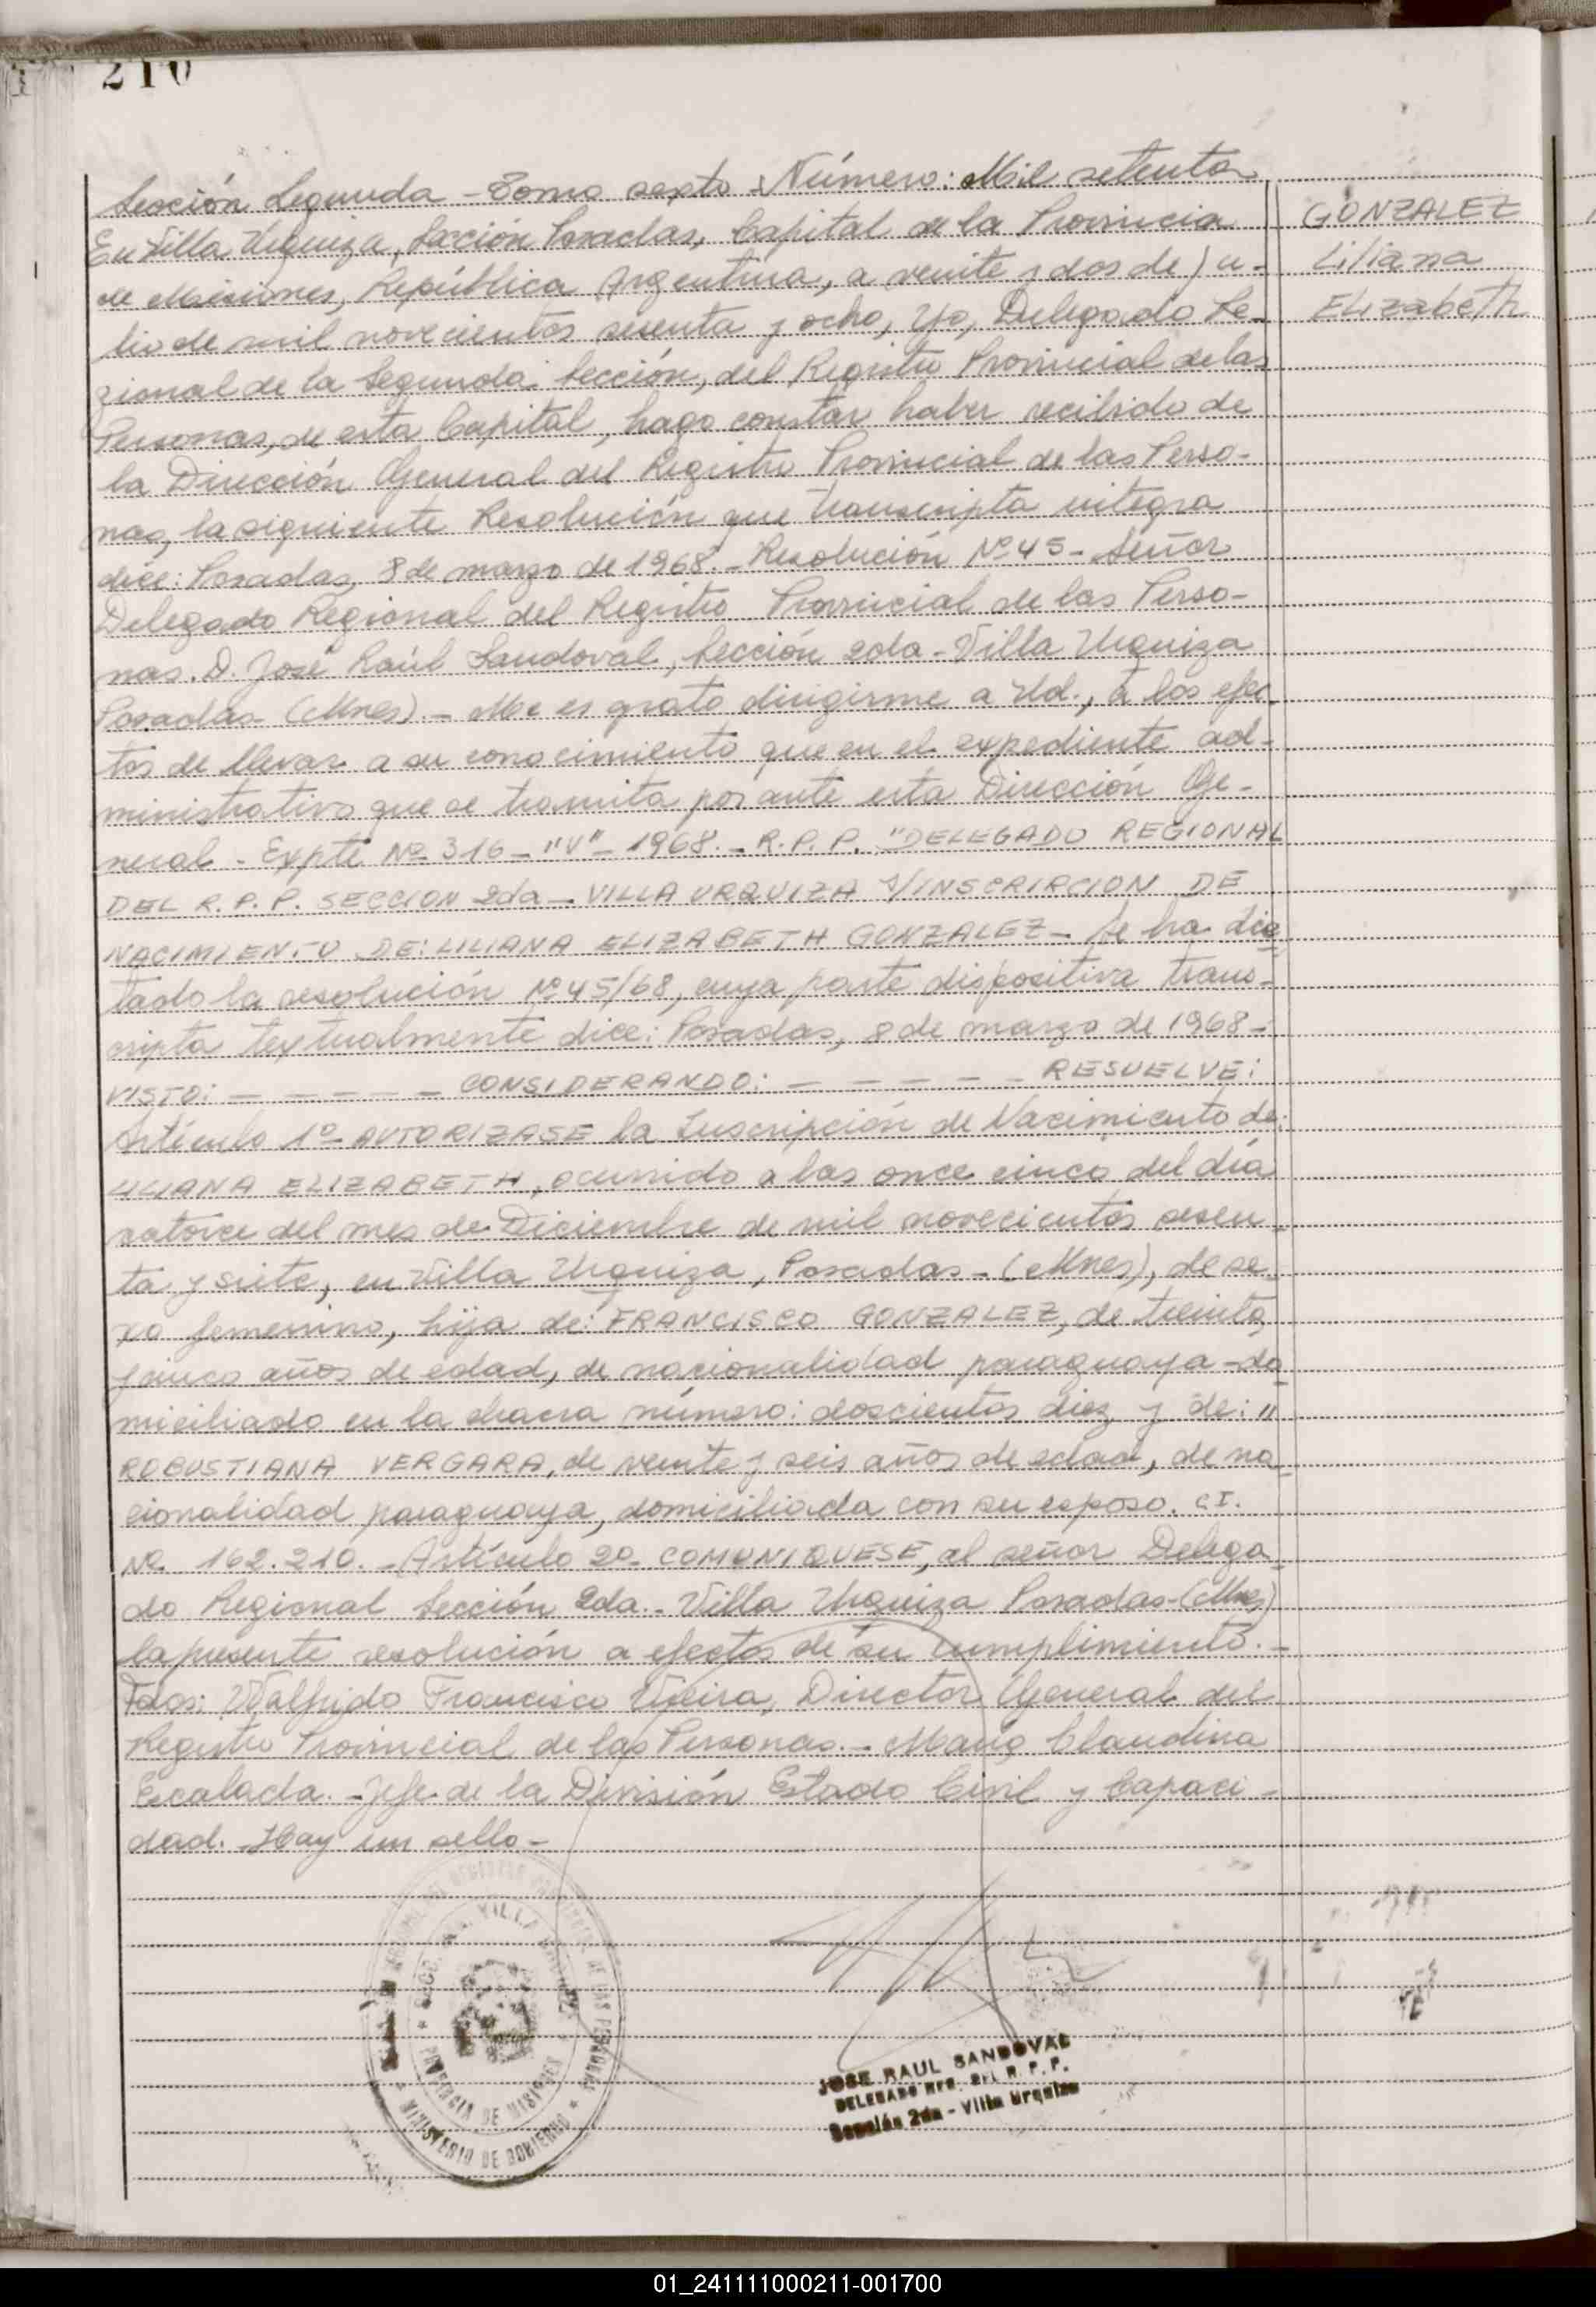 210
Sección Segunda - Tomo sexto - Número: Mil setenta
En Villa Urquiza, Sección Posadas, Capital de la Provincia
de Misiones, República Argentina, a veinte y dos de Ju-
lio de mil novecientos sesenta y ocho, Yo, Delegado Re-
gional de la Segunda Sección, del Registro Provincial de las
Personas, de esta Capital, hago constar haber recibido de
la Dirección General del Registro Provincial de las Perso-
nas, la siguiente Resolución que transcripta integra
dice: Posadas, 8 de marzo de 1968. - Resolución Nº 45 - Señor
Delegado Regional del Registro Provincial de las Perso-
nas. D. José Raúl Sandoval, Sección 2da - Villa Urquiza
Posadas - (Mnes). - Me es grato dirigirme a Ud., a los efec-
tos de llevar a su conocimiento que en el expediente ad-
ministrativo que se tramita por ante esta Dirección Ge-
neral - Expte Nº 316 - "V" - 1968. - R.P.P. "DELEGADO REGIONAL
DEL R.P.P. SECCION 2da - VILLA URQUIZA s/INSCRIPCION DE
NACIMIENTO DE: LILIANA ELIZABETH GONZALEZ - Se ha dic-
tado la resolución Nº 45/68, cuya parte dispositiva trans-
cripta textualmente dice: Posadas, 8 de marzo de 1968 -
VISTO: - - - - - CONSIDERANDO: - - - - - RESUELVE:
Artículo 1º AUTORIZASE la Inscripción de Nacimiento de:
LILIANA ELIZABETH, ocurrido a las once cinco del día
catorce del mes de Diciembre de mil novecientos sesen-
ta y siete, en Villa Urquiza, Posadas - (Mnes), de se-
xo femenino, hija de: FRANCISCO GONZALEZ, de treinta
y cinco años de edad, de nacionalidad paraguaya - do-
miciliado en la chacra número: doscientos diez y de: "
ROBUSTIANA VERGARA, de veinte y seis años de edad, de na-
cionalidad paraguaya, domiciliada con su esposo. C.I.
Nº 162.210. - Artículo 2º - COMUNIQUESE, al señor Delega-
do Regional Sección 2da. - Villa Urquiza Posadas - (Mnes)
la presente resolución a efectos de su cumplimiento. -
Fdos: Walfrido Francisco Vieira, Director General del
Registro Provincial de las Personas. - María Claudina
Escalada. - Jefe de la División Estado Civil y Capaci-
dad. - Hay un sello -
GONZALEZ
Liliana
Elizabeth
VILLA URQUIZA
PROVINCIA DE MISIONES
MINISTERIO DE GOBIERNO
JOSE RAUL SANDOVAL
DELEGADO R. P. P.
Sección 2da - Villa Urquiza
01_241111000211-001700